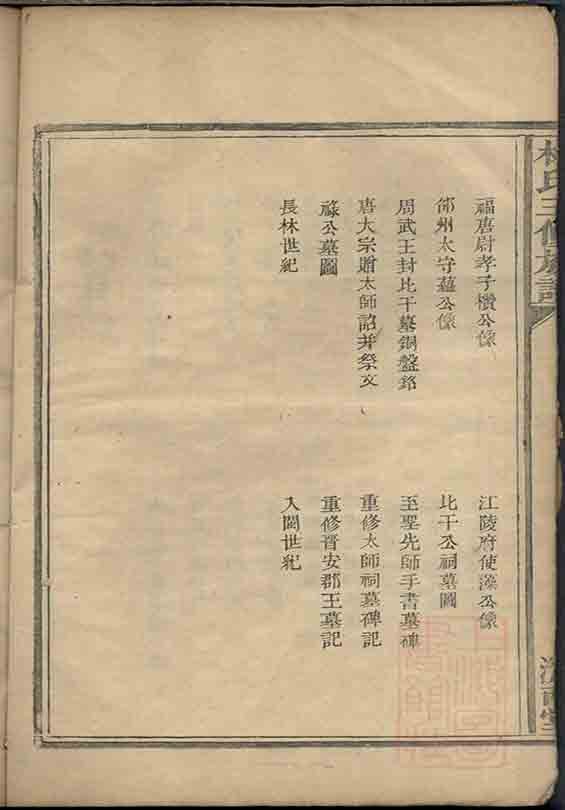 林氏三修族譜
福唐尉孝子欑公像
江陵府使藻公像
邵州太守蘊公像
比干公祠墓圖
周武王封比干墓銅盤銘
至聖先師手書墓碑
唐太宗贈太師詔并祭文
重修太師祠墓碑記
祿公墓圖
重修晉安郡王墓記
長林世紀
入閩世紀